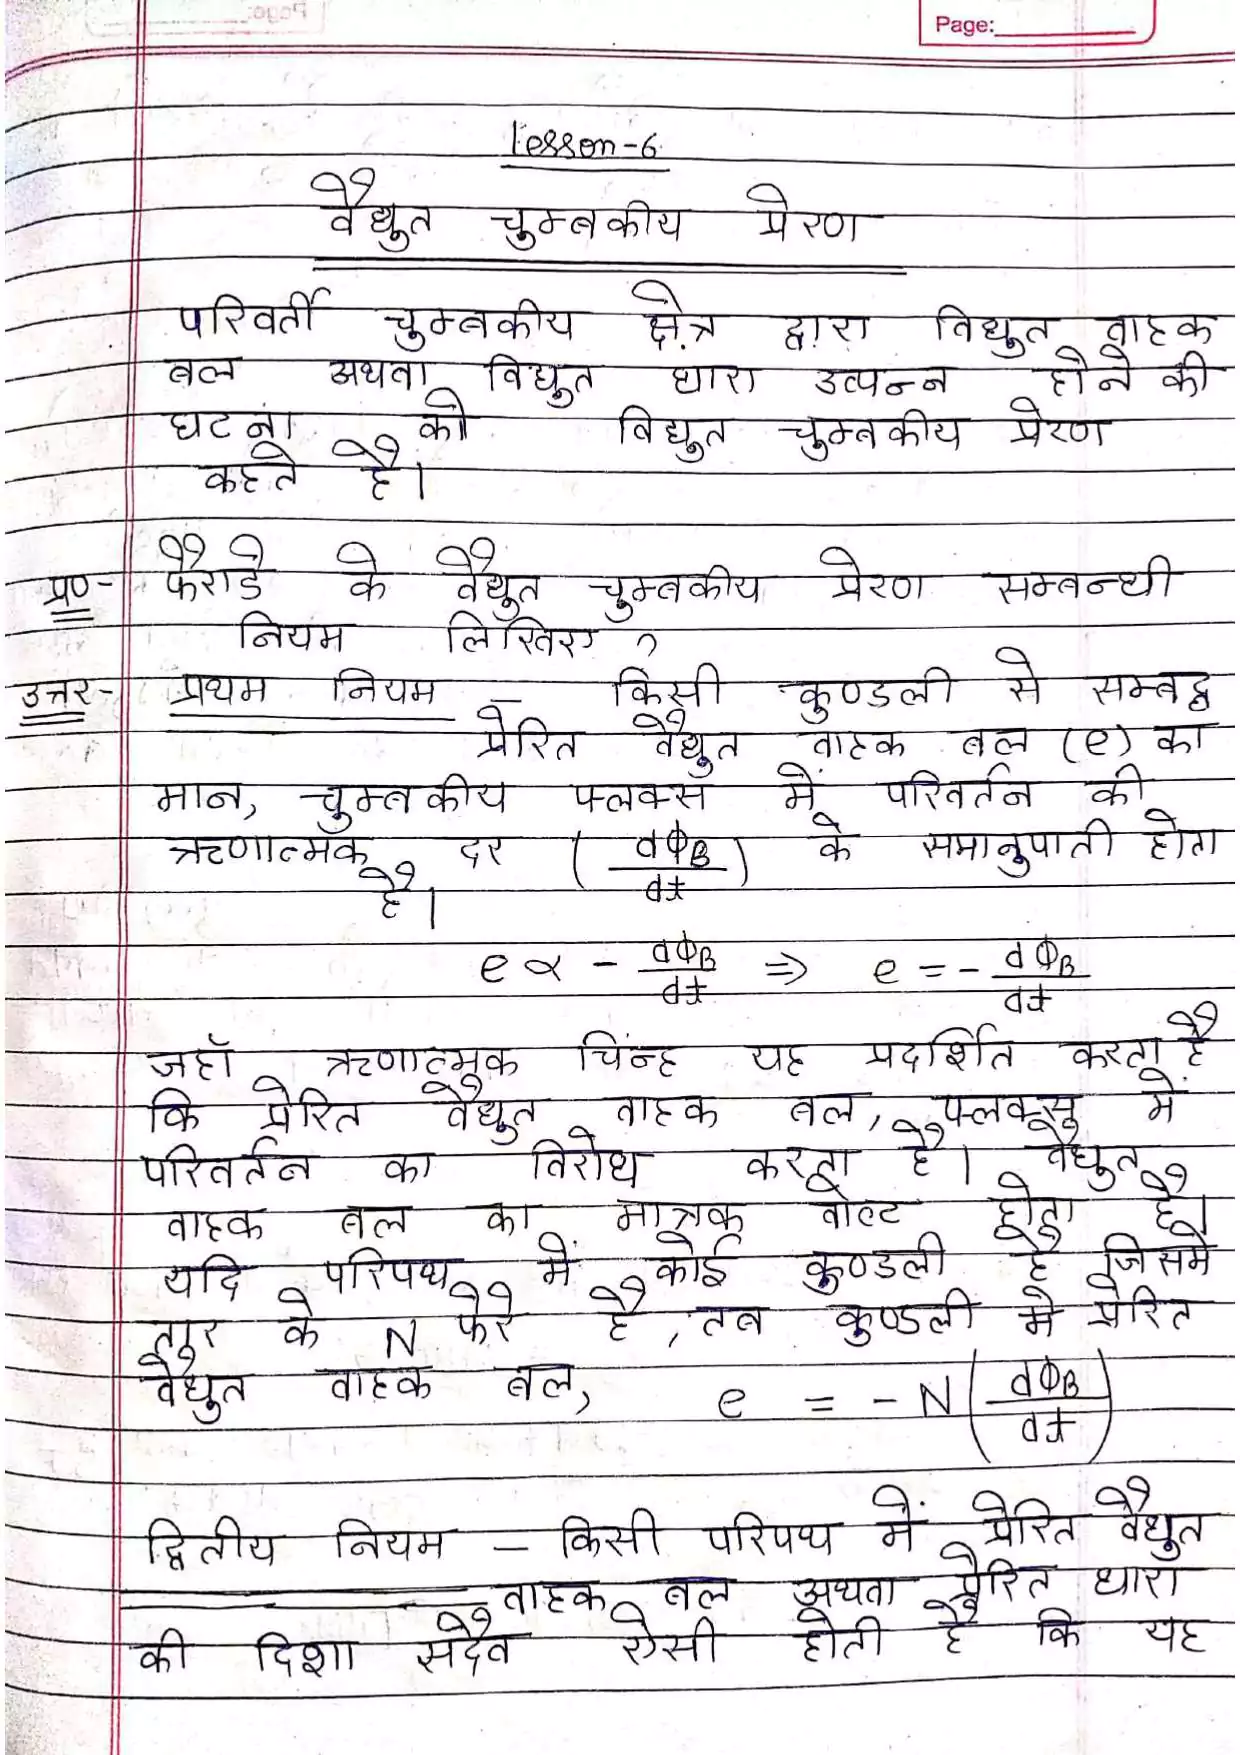 Page:
Lesson-6
वैद्युत चुम्बकीय प्रेरण
परिवर्ती चुम्बकीय क्षेत्र द्वारा विद्युत वाहक
बल अथवा विद्युत धारा उत्पन्न होने की
घटना को विद्युत चुम्बकीय प्रेरण
कहते है।
प्र०- फैराडे के वैद्युत चुम्बकीय प्रेरण सम्बन्धी
नियम लिखिए ?
उत्तर- प्रथम नियम - किसी कुण्डली से सम्बद्ध
प्रेरित वैद्युत वाहक बल (e) का
मान, चुम्बकीय फ्लक्स में परिवर्तन की
ऋणात्मक दर (dΦB/dt) के समानुपाती होता
है।
e ∝ - dΦB/dt ⇒ e = - dΦB/dt
जहाँ ऋणात्मक चिंन्ह यह प्रदर्शित करता है
कि प्रेरित वैद्युत वाहक बल, फ्लक्स में
परिवर्तन का विरोध करता है। वैद्युत
वाहक बल का मात्रक वोल्ट होता है।
यदि परिपथ में कोई कुण्डली है जिसमे
तार के N फेरे है, तब कुण्डली मे प्रेरित
वैद्युत वाहक बल, e = - N (dΦB/dt)
द्वितीय नियम - किसी परिपथ में प्रेरित वैद्युत
वाहक बल अथवा प्रेरित धारा
की दिशा सदैव ऐसी होती है कि यह